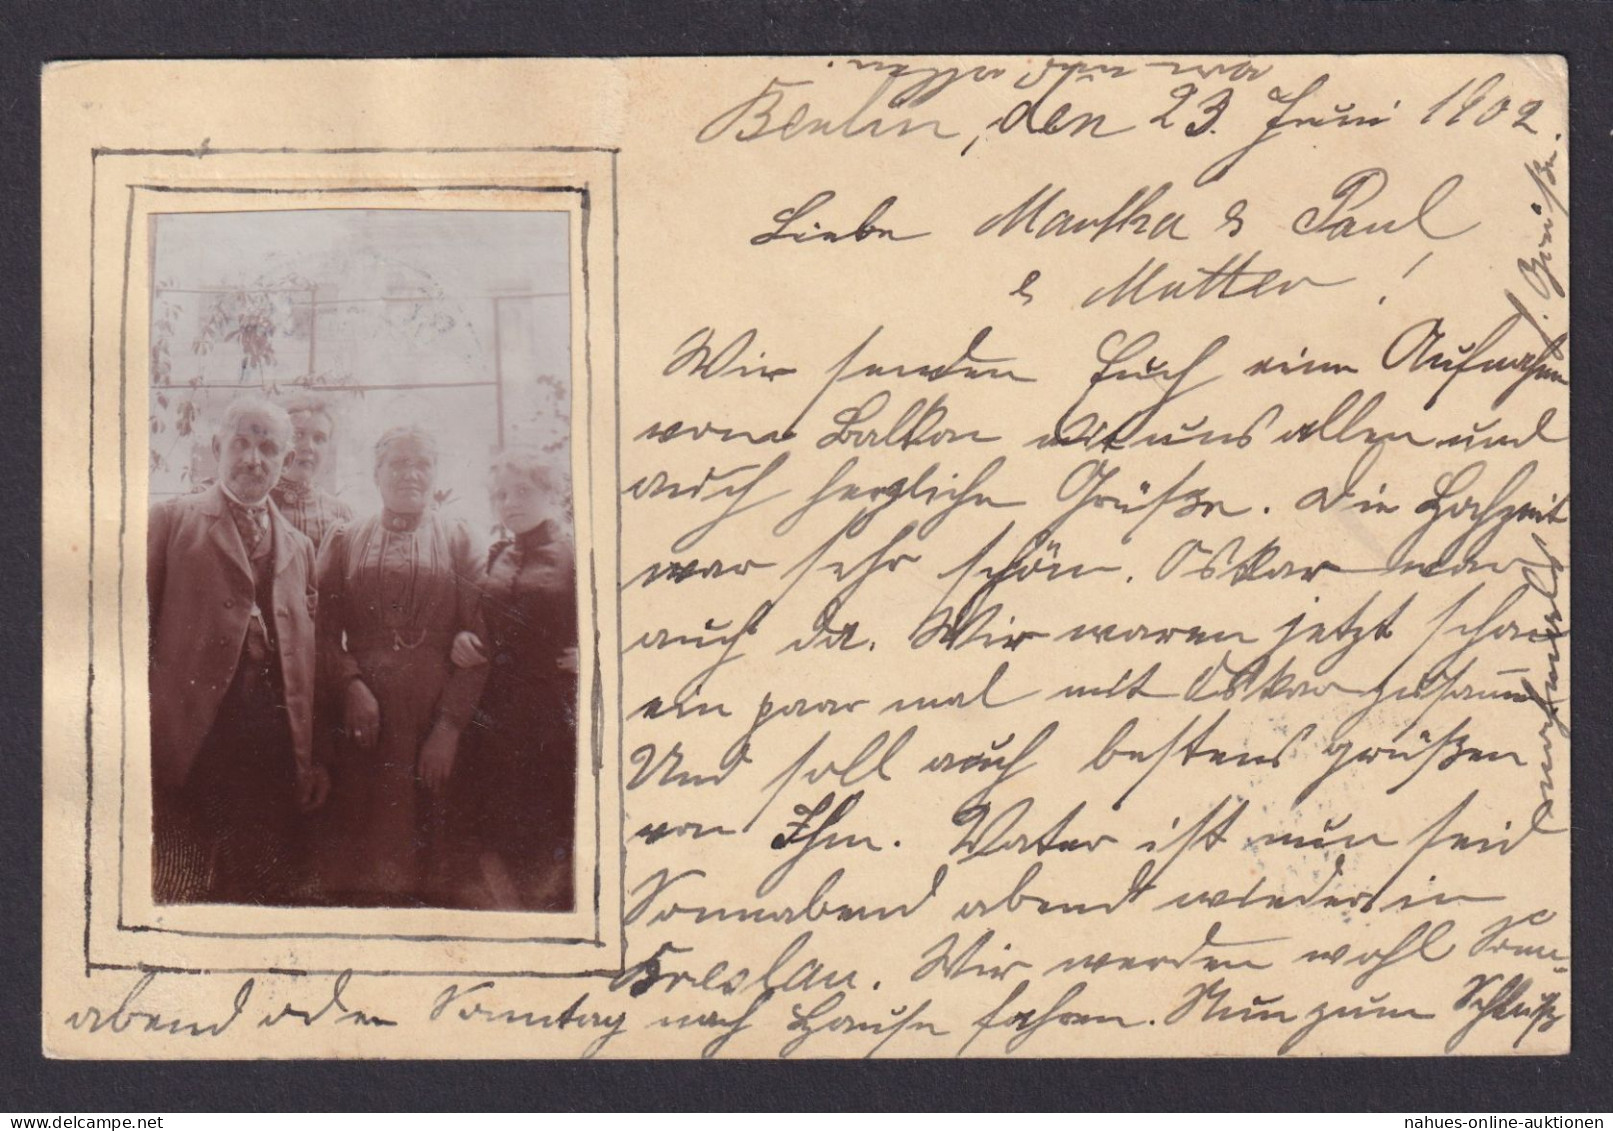 Berlin, den 23. Juni 1902.
Liebe Martha & Paul
& Mutter!
Wir senden Euch eine Aufnahme
vom Balkon mit uns allen und
auch herzliche Grüße. Die Hochzeit
war sehr schön. Oskar war
auch da. Wir waren jetzt schon
ein paar mal mit Oskar zusamm
Und soll auch bestens grüßen
von Ihm. Vater ist nun seid
Sonnabend abend wieder in
Breslau. Wir werden wohl Sonn-
abend oder Sonntag nach Hause fahren. Nun zum Schluß
nochmals
h. Grüße.
von uns allen.
nahues-online-auktionen